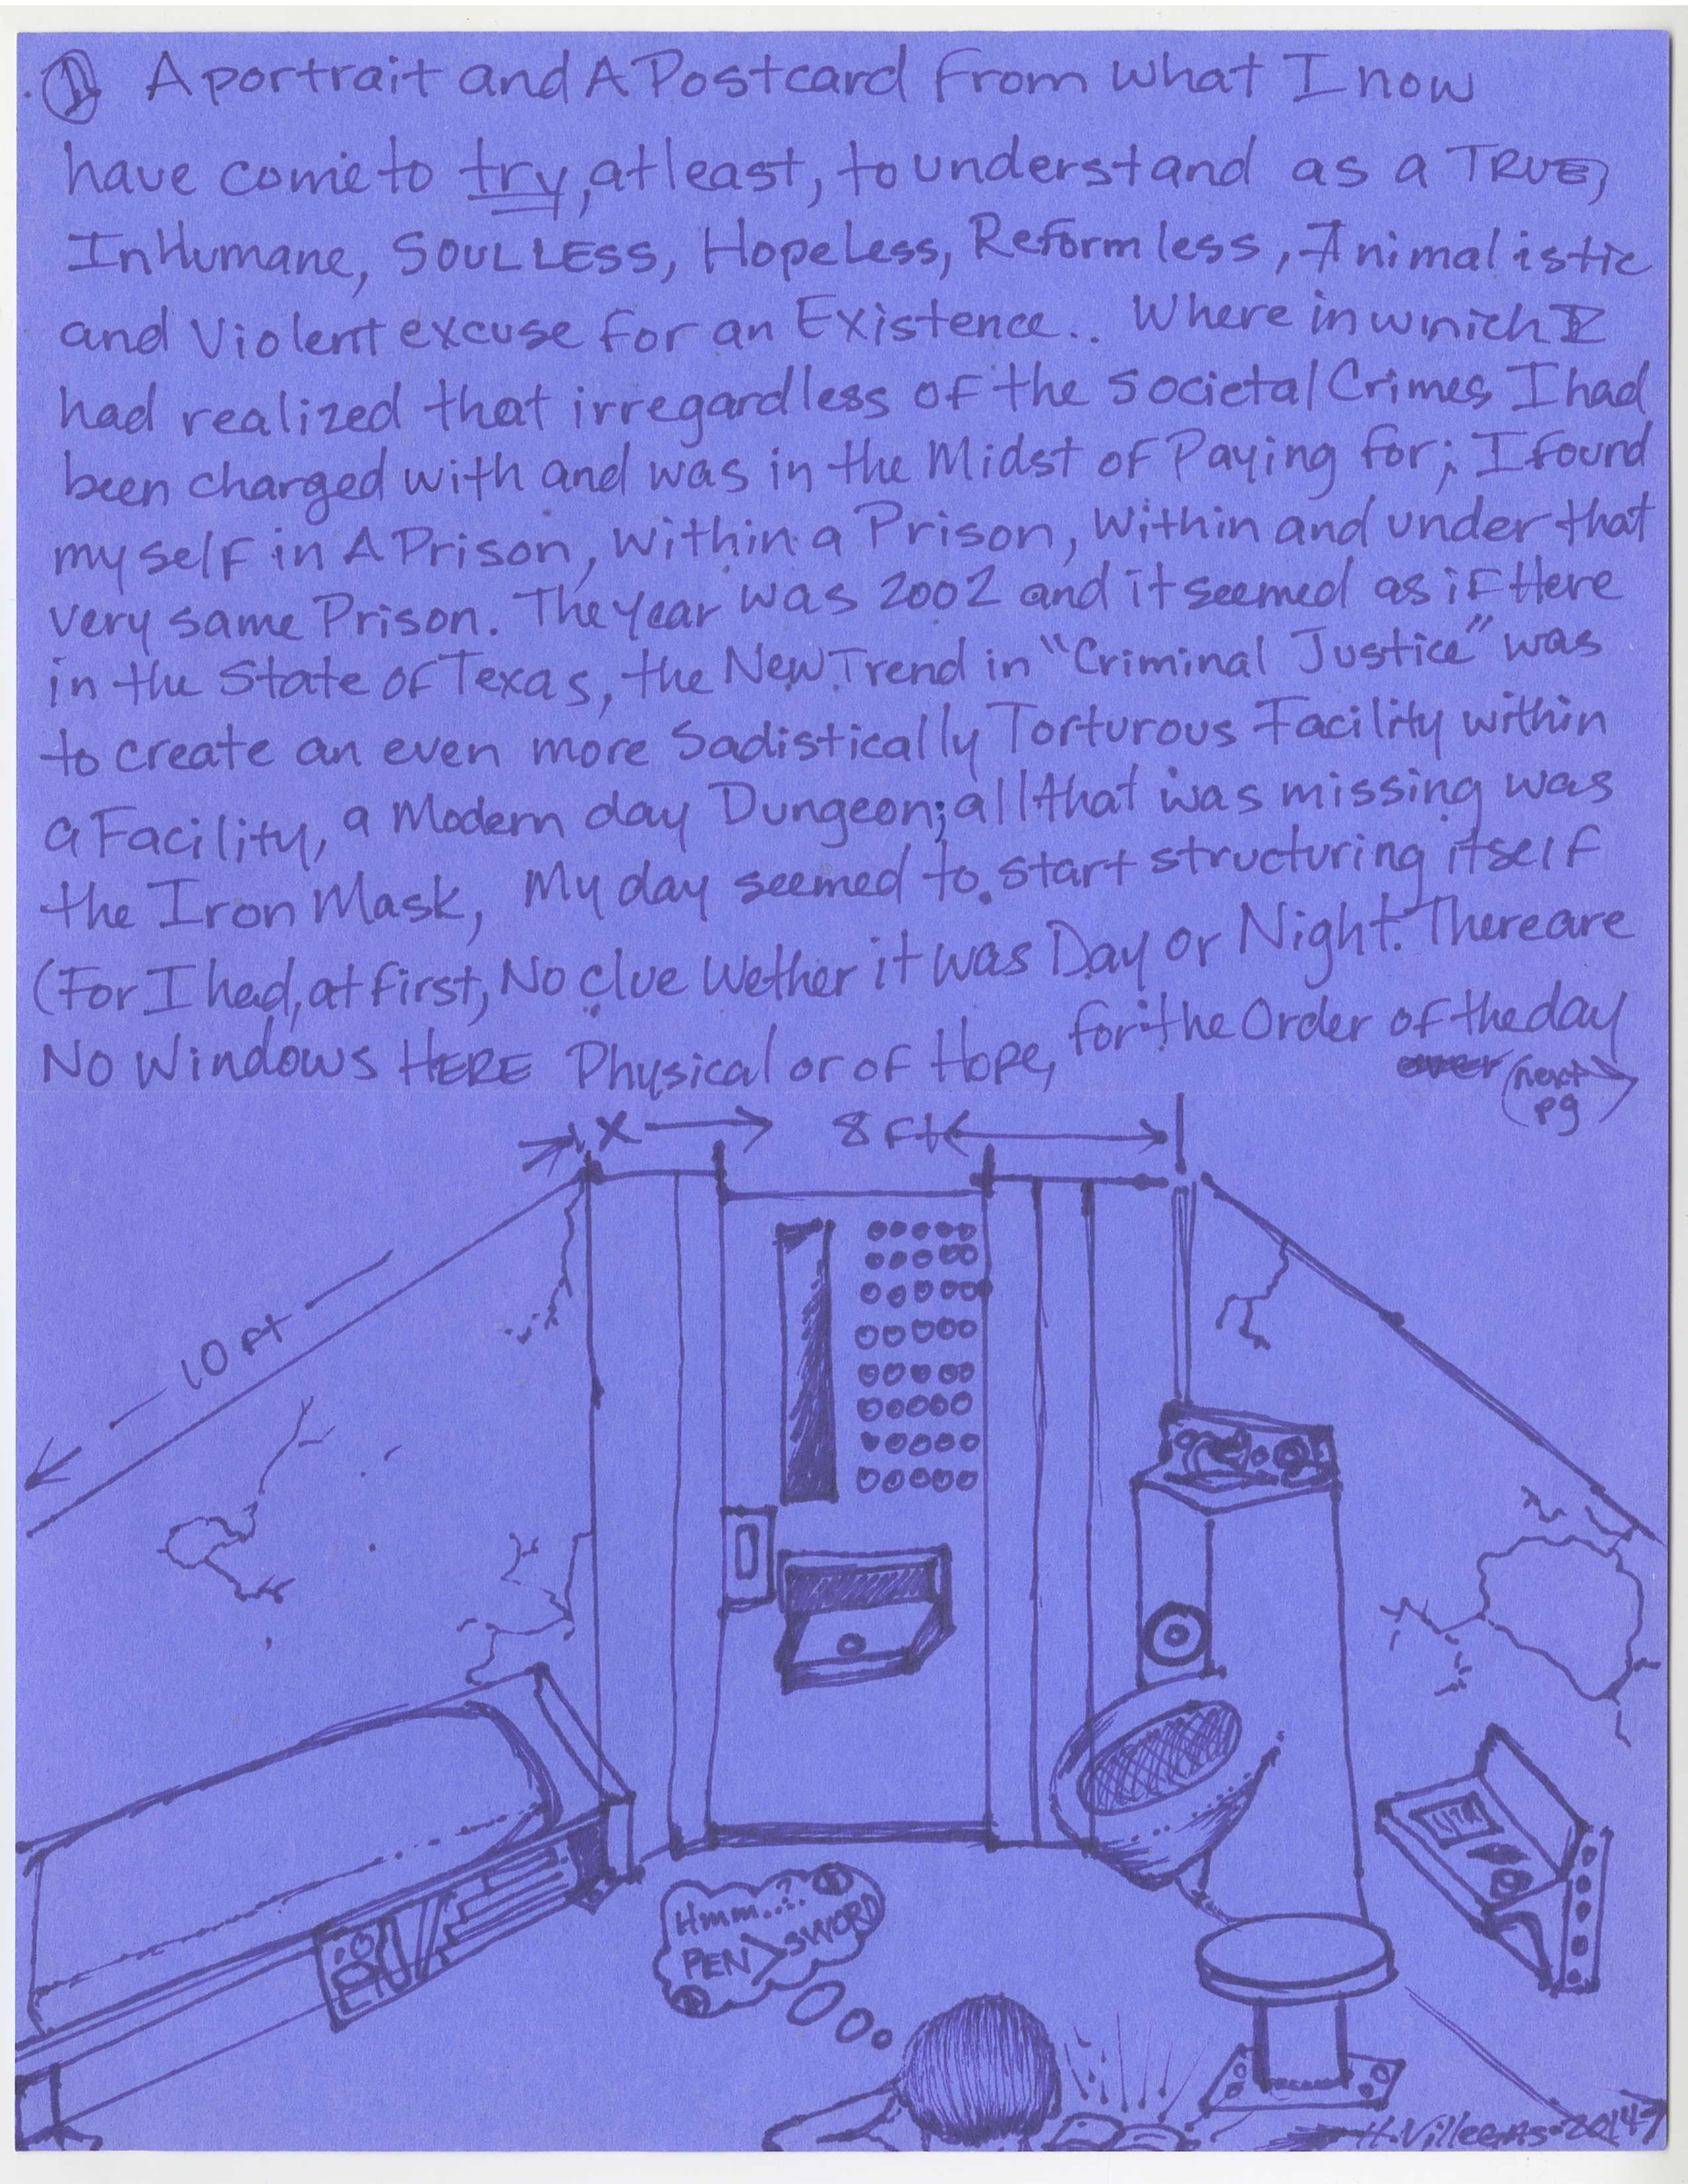 ① A portrait and A Postcard from what I now
have come to try, at least, to understand as a TRUE,
InHumane, SOULLESS, Hopeless, Reformless, Animalistic
and Violent excuse for an Existence.. Where in which I
had realized that irregardless of the Societal Crimes I had
been charged with and was in the Midst of Paying for; I found
myself in A Prison, within a Prison, within and under that
very same Prison. The year was 2002 and it seemed as if Here
in the State of Texas, the New Trend in "Criminal Justice" was
to create an even more Sadistically Torturous Facility within
a Facility, a Modern day Dungeon; all that was missing was
the Iron Mask, My day seemed to start structuring itself
(For I had, at first, No clue Wether it was Day or Night. There are
No Windows HERE Physical or of Hope, for the Order of the day
over (next
pg
X 8 ft
10 ft
Hmm...?
PEN > SWORD
2014